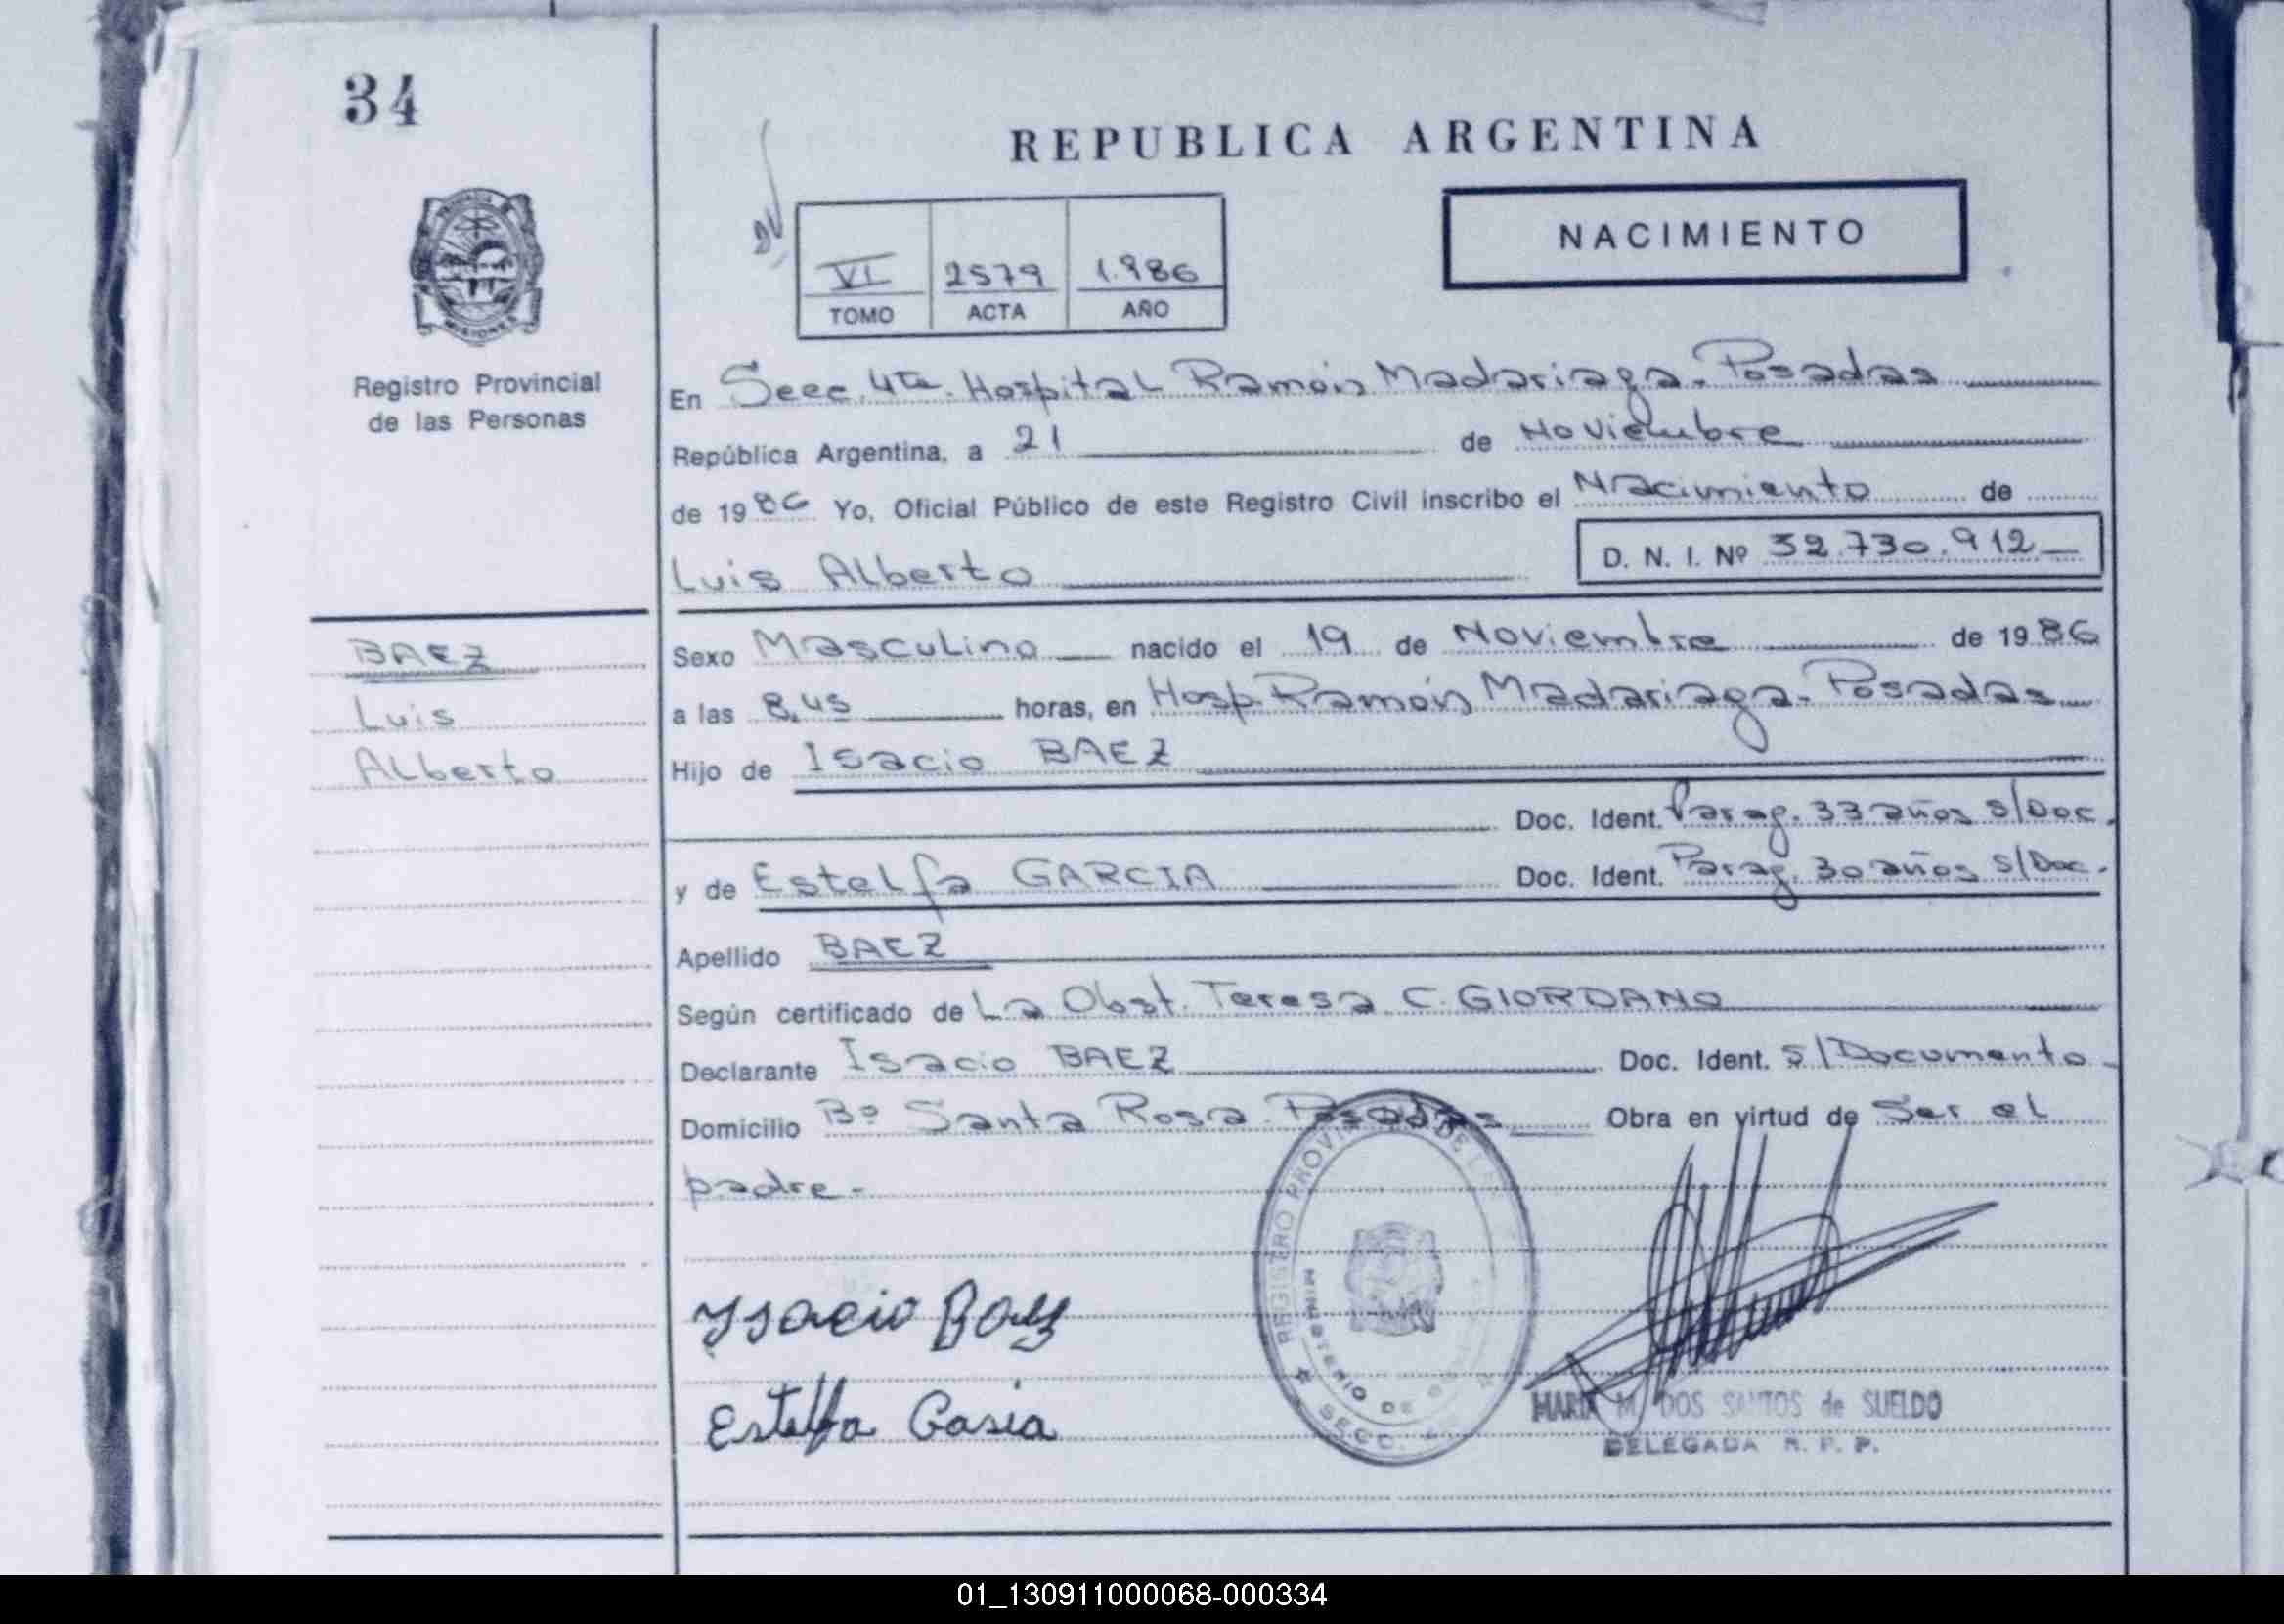 34
REPUBLICA ARGENTINA
NACIMIENTO
VI 2579 1.986
TOMO ACTA AÑO
MISIONES
Registro Provincial
de las Personas
En Secc. 4ta. Hospital Ramón Madariaga - Posadas
República Argentina, a 21 de Noviembre
de 1986 Yo, Oficial Público de este Registro Civil inscribo el Nacimiento de
Luis Alberto D. N. I. Nº 32.730.912
BAEZ
Luis
Alberto
Sexo Masculino nacido el 19 de Noviembre de 1986
a las 8,45 horas, en Hosp. Ramón Madariaga - Posadas
Hijo de Isacio BAEZ
Doc. Ident. Parag. 33 años s/Doc.
y de Estelfa GARCIA Doc. Ident. Parag. 30 años s/Doc.
Apellido BAEZ
Según certificado de La Obst. Teresa C. GIORDANO
Declarante Isacio BAEZ Doc. Ident. s/Documento
Domicilio Bº Santa Rosa - Posadas Obra en virtud de Ser el
padre -
REGISTRO PROVINCIAL DE
MINISTERIO DE
SECC.
Ysacio Baez
Estelfa Gasia
MARIA M. DOS SANTOS de SUELDO
DELEGADA R. P. P.
01_130911000068-000334